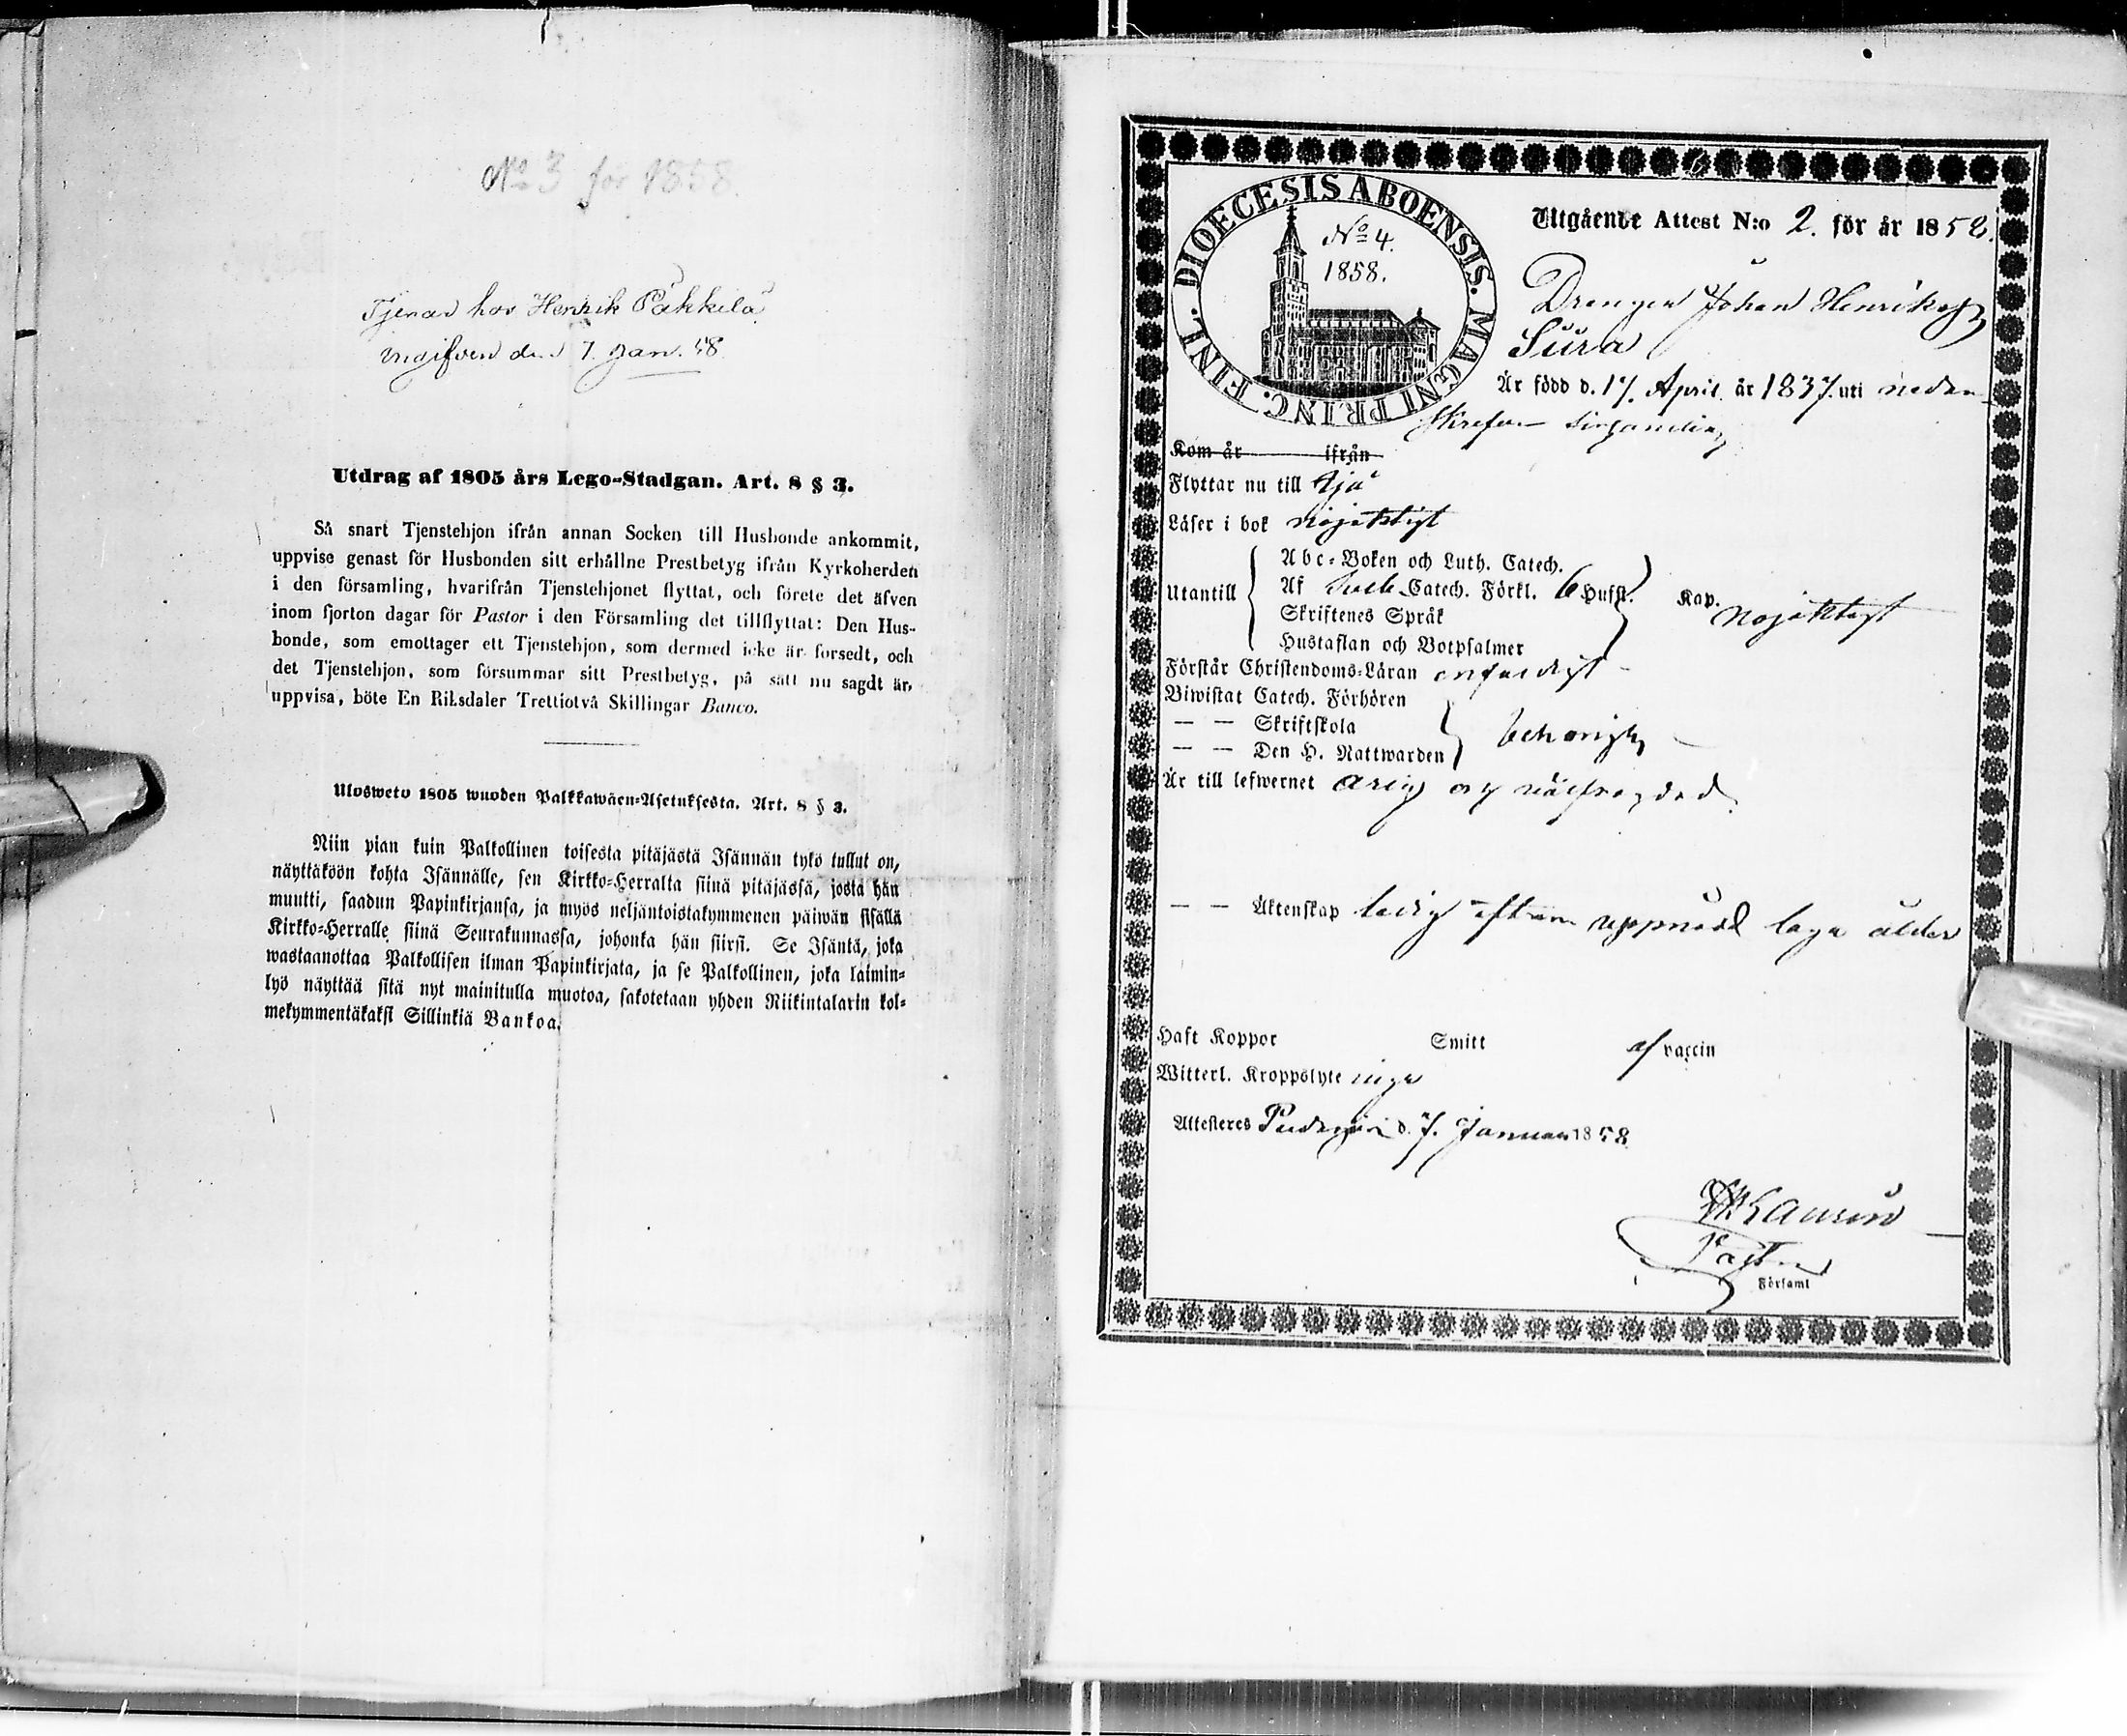 No 3 för 1858.
Tjenar hos Henrik Pakkila
ingifven den 7 Jan. 58.
Utdrag af 1805 års Lego-Stadgan. Art. 8 § 3.
Så snart Tjenstehjon ifrån annan Socken till Husbonde ankommit,
uppvise genast för Husbonden sitt erhållne Prestbetyg ifrån Kyrkoherden
i den församling, hvarifrån Tjenstehjonet flyttat, och förete det äfven
inom fjorton dagar för Pastor i den Församling det tillflyttat: Den Hus-
bonde, som emottager ett Tjenstehjon, som dermed icke är försedt, och
det Tjenstehjon, som försummar sitt Prestbetyg, på sätt nu sagdt är,
uppvisa, böte En Riksdaler Trettiotvå Skillingar Banco.
Ulosweto 1805 wuoden Palkkawäen-Asetuksesta. Art. 8 § 3.
Niin pian kuin Palkollinen toisesta pitäjästä Isännän tykö tullut on,
näyttäköön kohta Isännälle, sen Kirkko-Herralta siinä pitäjässä, josta hän
muutti, saadun Papinkirjansa, ja myös neljäntoistakymmenen päiwän sisällä
Kirkko-Herralle siinä Seurakunnassa, johonka hän siirsi. Se Isäntä, joka
wastaanottaa Palkollisen ilman Papinkirjata, ja se Palkollinen, joka laimin-
lyö näyttää sitä nyt mainitulla muotoa, sakotetaan yhden Riikintalarin kol-
mekymmentäkaksi Sillinkiä Bankoa.
DIOECESIS ABOENSIS. MAGNI PRINC. FINL.
No 4.
1858.
Utgående Attest N:o 2. för år 1858.
Drengen Johan Henriksson
Sura
Är född d. 17. April år 1837. uti nedan-
skrefne
Kom år ifrån
Flyttar nu till Ijo
Läser i bok nöjaktigt
Abc-Boken och Luth. Catech.
Utantill Af Catech. Förkl. 6 Hufst. Kap. nöjaktigt
Skriftenes Språk
Hustaflan och Botpsalmer
Förstår Christendoms-Läran enfaldigt
Biwistat Catech. Förhören
— — Skriftskola
— — Den H. Nattwarden behörigt
Är till lefwernet ärlig och välfrägdad
— — Äktenskap ledig efter uppnådd laga ålder
Haft Koppor Smitt af vaccin
Witterl. Kroppslyte inga
Attesteras Pudasjärvi d. 7. Januari 1858
Pastor
Församl